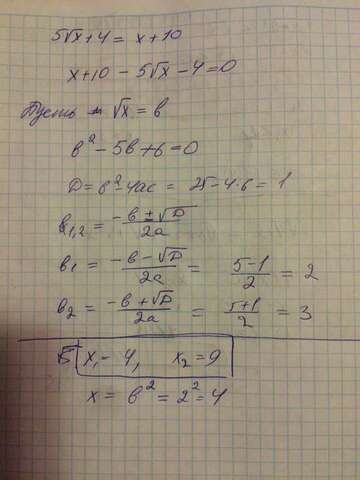 5√x + 4 = x + 10
x + 10 - 5√x - 4 = 0
Пусть √x = в
в² - 5в + 6 = 0
D = в² - 4ac = 25 - 4·6 = 1
в1,2 = (-в ± √D)/2a
в1 = (-в - √D)/2a = (5-1)/2 = 2
в2 = (-в + √D)/2a = (5+1)/2 = 3
x1 = 4, x2 = 9
x = в² = 2² = 4